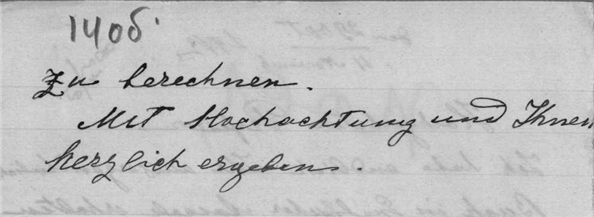 1405.
Zu berechnen.
Mit Hochachtung und Ihnen
herzlich ergeben.